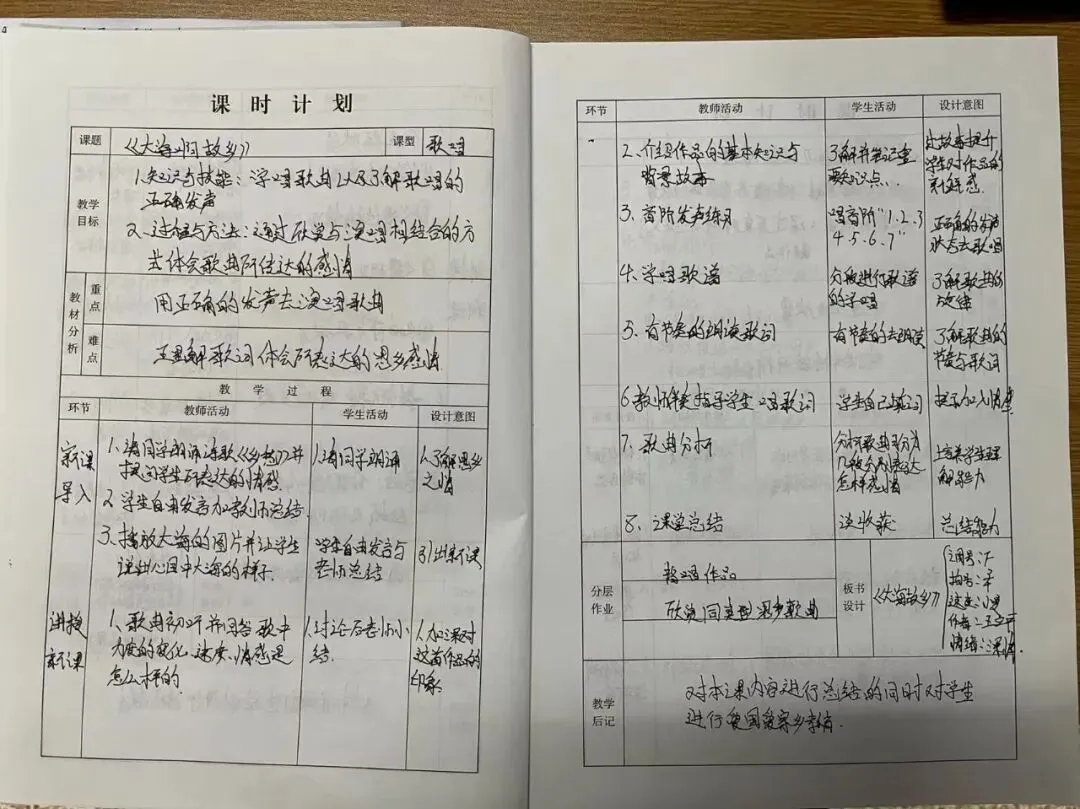 课时计划
课题 《大海啊故乡》 课型 歌唱
教学目标
1.知识与技能：学唱歌曲以及了解歌唱的
正确发声
2.过程与方法：通过欣赏与演唱相结合的方
式体会歌曲所传达的感情
教材分析
重点 用正确的发声去演唱歌曲
难点 理解歌词体会所表达的思乡感情
教学过程
环节 教师活动 学生活动 设计意图
新课导入
1.请同学朗诵诗歌《乡愁》并
提问学生所表达的情感
2.学生自由发言加教师总结.
3.播放大海的图片并让学生
说出心目中大海的样子.
1.请同学朗诵
学生自由发言与
老师总结
1.了解思乡
之情
引出新课
讲授新课
1.歌曲初听并回答歌中
力度的变化、速度、情感是
怎么样的
1.讨论后小
结.
1.加深对
这首作品的
印象
环节 教师活动 学生活动 设计意图
2.介绍作品的基本知识与
背景故事
了解并笔记重
要知识点
让故事提升
学生对作品的
亲鲜感
3.音阶发声练习
唱音阶"1.2.3
4.5.6.7"
正确的发声
状态去歌唱
4.学唱歌谱
分段进行歌谱
的学唱
了解歌曲的
旋律
5.有节奏的朗读歌词
有节奏的去朗读
了解歌曲的
节奏与歌词
6.教师伴奏指导学生唱歌词
学生自己填词
提示加入情感
7.歌曲分析
分析歌曲可分为
几段分别表达
怎样感情
培养学生理
解能力
8.课堂总结
谈收获
总结能力
分层作业
演唱作品
欣赏同类型思乡歌曲
板书设计
《大海故乡》
调号：F
拍号：
速度：
作者：王立平
情绪：深情
教学后记
对本课内容进行总结的同时对学生
进行爱国爱家乡